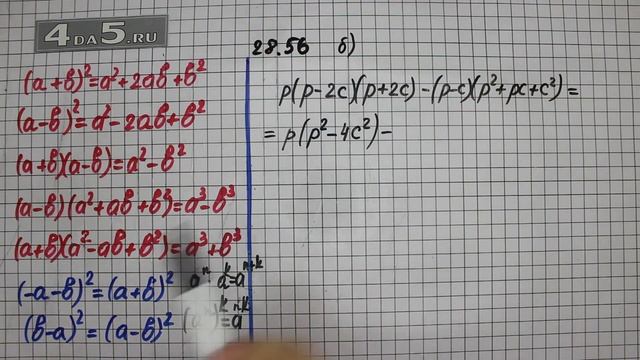 4DA5.RU
(a+b)²=a²+2ab+b²
(a-b)²=a²-2ab+b²
(a+b)(a-b)=a²-b²
(a-b)(a²+ab+b²)=a³-b³
(a+b)(a²-ab+b²)=a³+b³
(-a-b)²=(a+b)²
(b-a)²=(a-b)²
aⁿ aᵏ=aⁿ⁺ᵏ
28.56 б)
p(p-2c)(p+2c)-(p-c)(p²+pc+c²)=
=p(p²-4c²)-